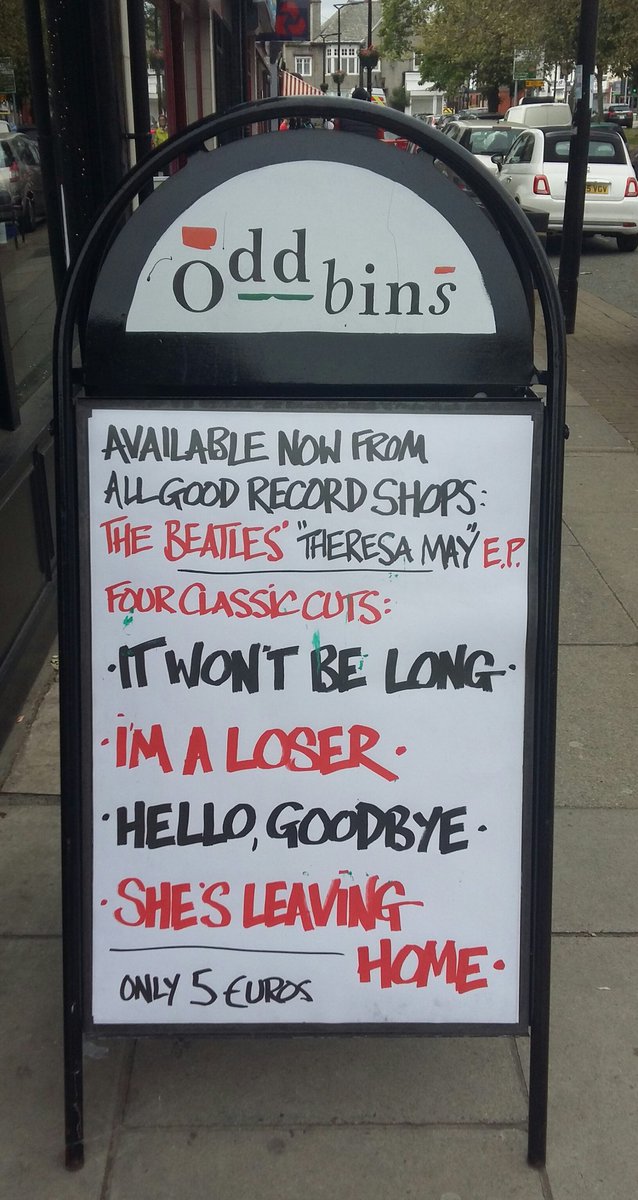 Oddbins
AVAILABLE NOW FROM
ALL GOOD RECORD SHOPS:
THE BEATLES' "THERESA MAY" E.P.
FOUR CLASSIC CUTS:
·IT WON'T BE LONG·
·I'M A LOSER·
·HELLO, GOODBYE·
·SHE'S LEAVING
HOME·
ONLY 5 EUROS